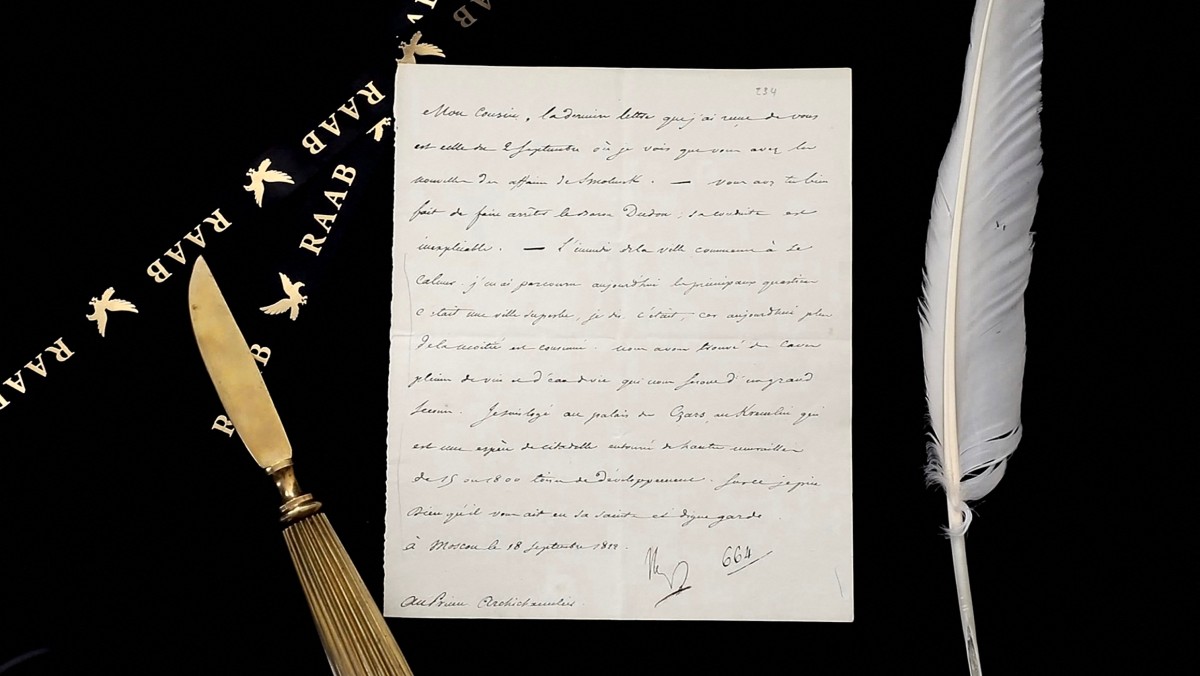 RAAB
RAAB
RAAB
RAAB
RAAB
234
Mon Cousin, la dernière lettre que j'ai reçue de vous
est celle du 2 Septembre où je vois que vous avez les
nouvelles des affaires de Smolensk. — vous avez très bien
fait de faire arrêter le Baron Dudon; sa conduite est
inexplicable. — L'incendie de la ville commence à se
calmer. j'en ai parcouru aujourd'hui les principaux quartiers
c'était une ville superbe, je dis c'était, car aujourd'hui plus
de la moitié est consumée. nous avons trouvé des caves
pleines de vin et d'eau de vie qui nous seront d'un grand
secours. Je suis logé au palais des Czars, au Kremlin qui
est une espèce de citadelle entourée de hautes murailles
de 15 ou 1800 toises de développement. Sur ce je prie
Dieu qu'il vous ait en sa sainte et digne garde
à Moscou le 18 Septembre 1812.
664
Au Prince Archichancelier